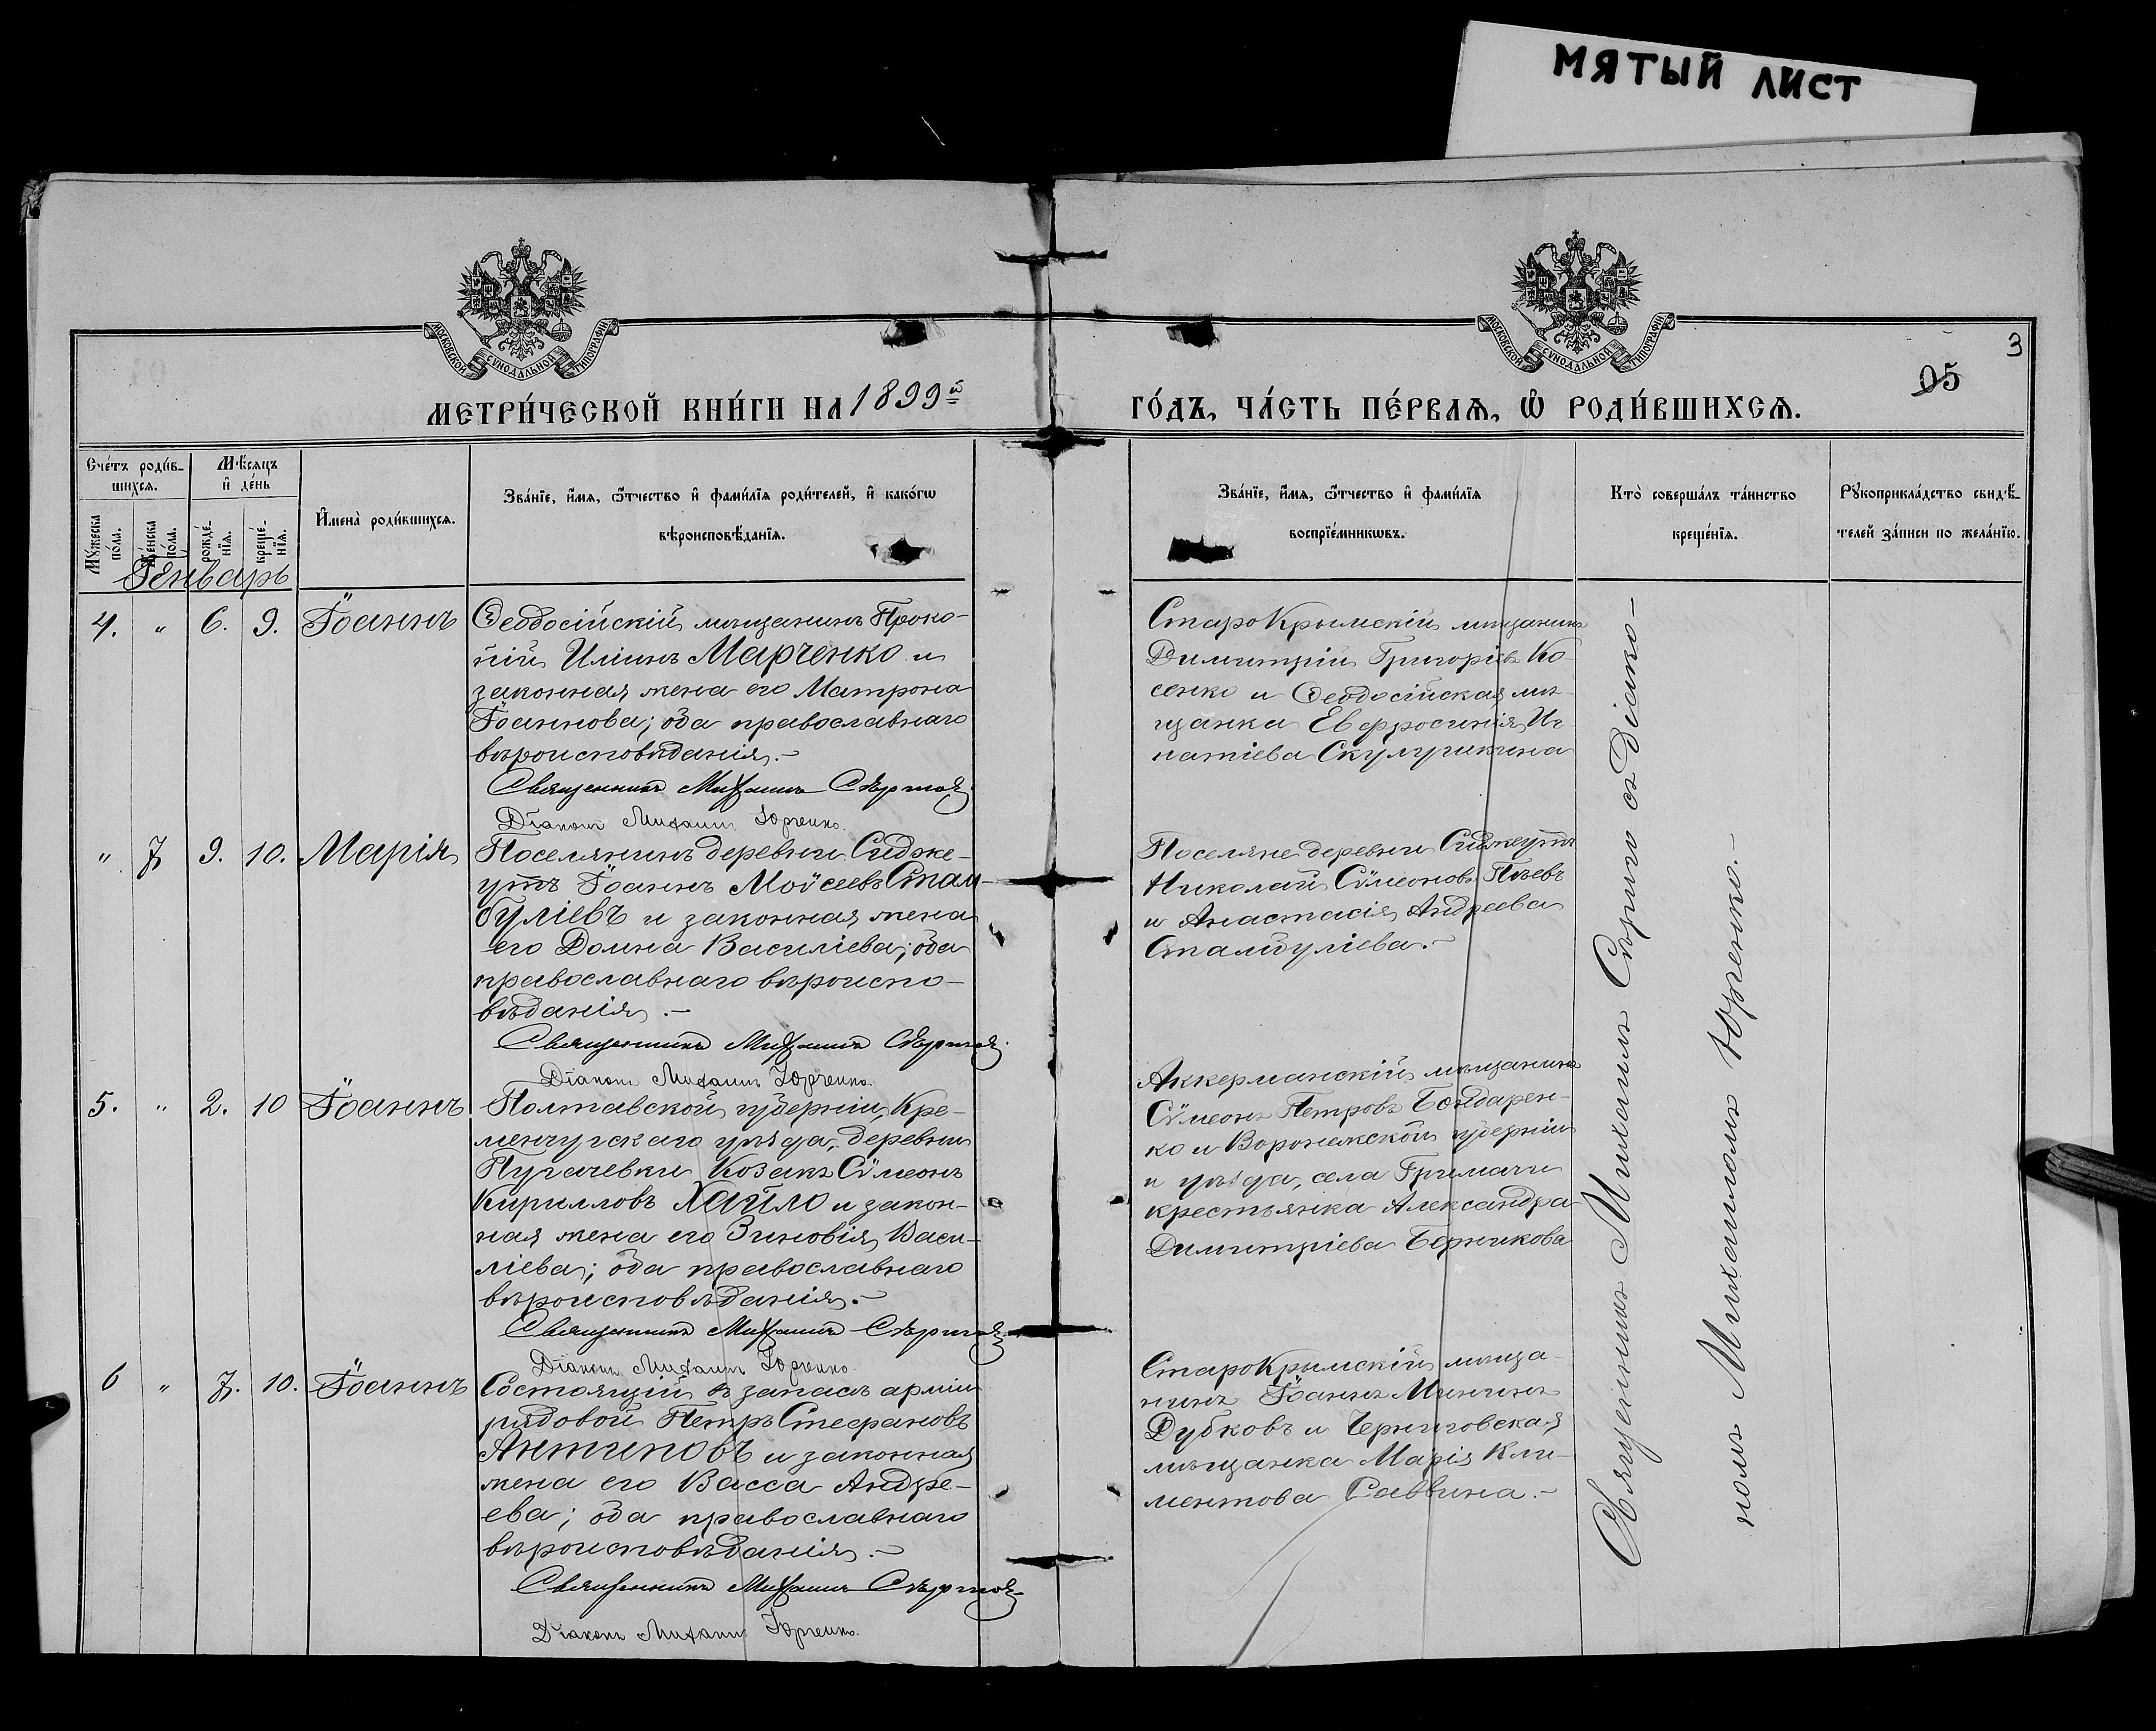 МЯТЫЙ ЛИСТ
МОСКОВСКОЙ СУНОДАЛЬНОЙ ТИПОГРАФІИ
МОСКОВСКОЙ СУНОДАЛЬНОЙ ТИПОГРАФІИ
3
05
МЕТРИ́ЧЕСКОЙ КНИ́ГИ НА 1899й
ГО́ДЪ, ЧА́СТЬ ПЕ́РВАЯ, Ѡ РОДИ́ВШИХСЯ.
Сче́тъ роди́в-
шихся.
Мѣ́сяцъ
и҆ де́нь
Мꙋ́жеска
по́ла.
Же́нска
по́ла.
рожде́-
нїя.
креще́-
нїя.
И҆мена̀ роди́вшихся.
Зва́нїе, и҆́мя, ѻ҆́тчество и҆ фами́лїя роди́телей, и҆ како́гѡ
вѣроисповѣ́данїя.
Зва́нїе, и҆́мя, ѻ҆́тчество и҆ фами́лїя
воспрїе́мникѡвъ.
Кто̀ соверша́лъ та́инство
креще́нїя.
Рꙋкоприкла́дство свидѣ́-
телей за́писи по жела́нїю.
Генварь
4. " 6. 9. Іоаннъ
Ѳеодосійскій мѣщанинъ Проко-
пій Иліинъ Марченко и
законная жена его Матрона
Іоаннова; оба православнаго
вѣроисповѣданія.-
Священникъ Михаилъ
Діаконъ Михаилъ Юрченко.
СтароКрымскій мѣщанинъ
Димитрій Григоріевъ Ко-
сенко и Ѳеодосійская мѣ-
щанка Евфросинія Иг-
натіева
" 7 9. 10. Марія
Поселянинъ деревни Сидже-
утъ Іоаннъ Моѵсеевъ Стам-
буліевъ и законная жена
его Домна Василіева; оба
православнаго вѣроиспо-
вѣданія.-
Священникъ Михаилъ
Діаконъ Михаилъ Юрченко.
Поселяне деревни Сиджеутъ
Николай Сѵмеоновъ
и Анастасія Андреева
Стамбуліева.-
5. " 2. 10 Іоаннъ
Полтавской губерніи, Кре-
менчугскаго уѣзда, деревни
Пугачевки Козакъ Сѵмеонъ
Кирилловъ Хайло и закон-
ная жена его Зиновія Васи-
ліева; оба православнаго
вѣроисповѣданія.-
Священникъ Михаилъ
Діаконъ Михаилъ Юрченко.
Аккерманскій мѣщанинъ
Сѵмеонъ Петровъ Бондарен-
ко и Воронежской губерніи
и уѣзда, села Гримачи
крестьянка Александра
Димитріева Бережкова
6 " 7. 10. Іоаннъ
Состоящій въ запасѣ арміи
рядовой Петръ Стефановъ
Антиповъ и законная
жена его Васса Андре-
ева; оба православнаго
вѣроисповѣданія.-
Священникъ Михаилъ
Діаконъ Михаилъ Юрченко.
СтароКрымскій мѣща-
нинъ Іоаннъ Мининъ
Дубковъ и Черниговская
мѣщанка Марія Кли-
ментова Саввина.-
Священникъ Михаилъ съ Діако-
номъ Михаиломъ Юрченко.-